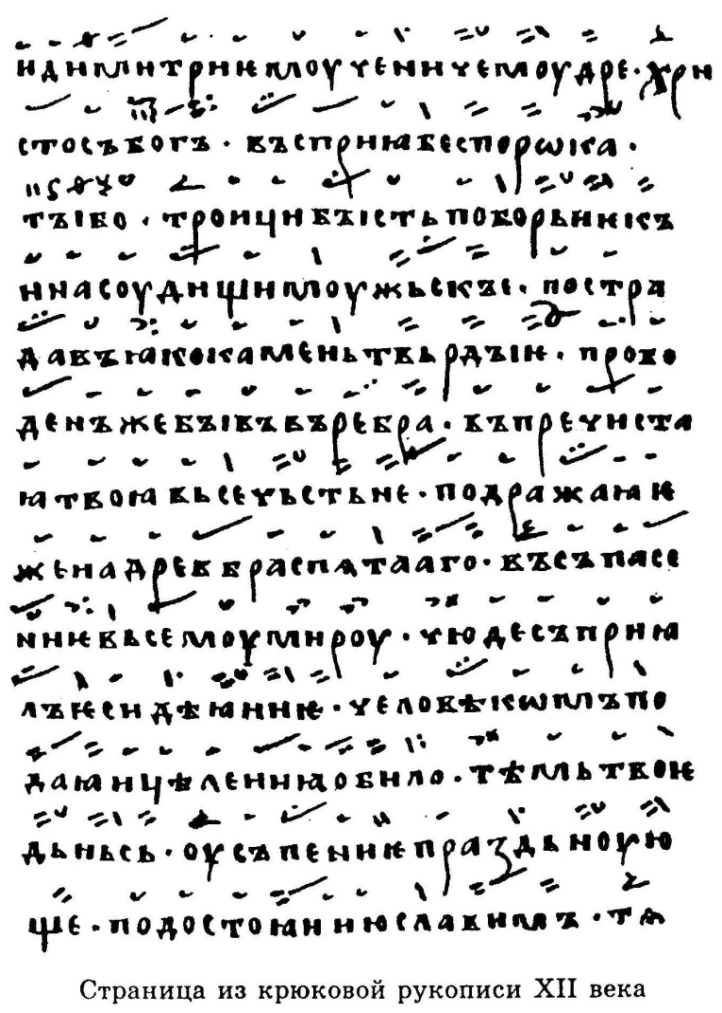 н димитриѥ моученичемоудре · хри
стосъ богъ · въсприѩ беспорѡка ·
тъі бо · троици бъість поборьникъ
и на соудищи моужьскъі · пострa
давъ ꙗко камень твьрдъіи · пробо
денъ же бъівъ въ ребра · въ пречиста
ꙗ твоꙗ вьсечьстьне · подражаꙗ ѥ
же на древѣ распѧтааго · въ съпасе
ниѥ вьсемоу мироу · чюдесъ приꙗ
лъ ѥси дѣꙗниѥ · человѣкѡмъ по
даꙗ ицѣлениꙗ обило · тѣмь твоѥ
дьньсь · оусъпениѥ праздьноую
ще · по достоꙗнию славимъ · тѧ
Страница из крюковой рукописи XII века